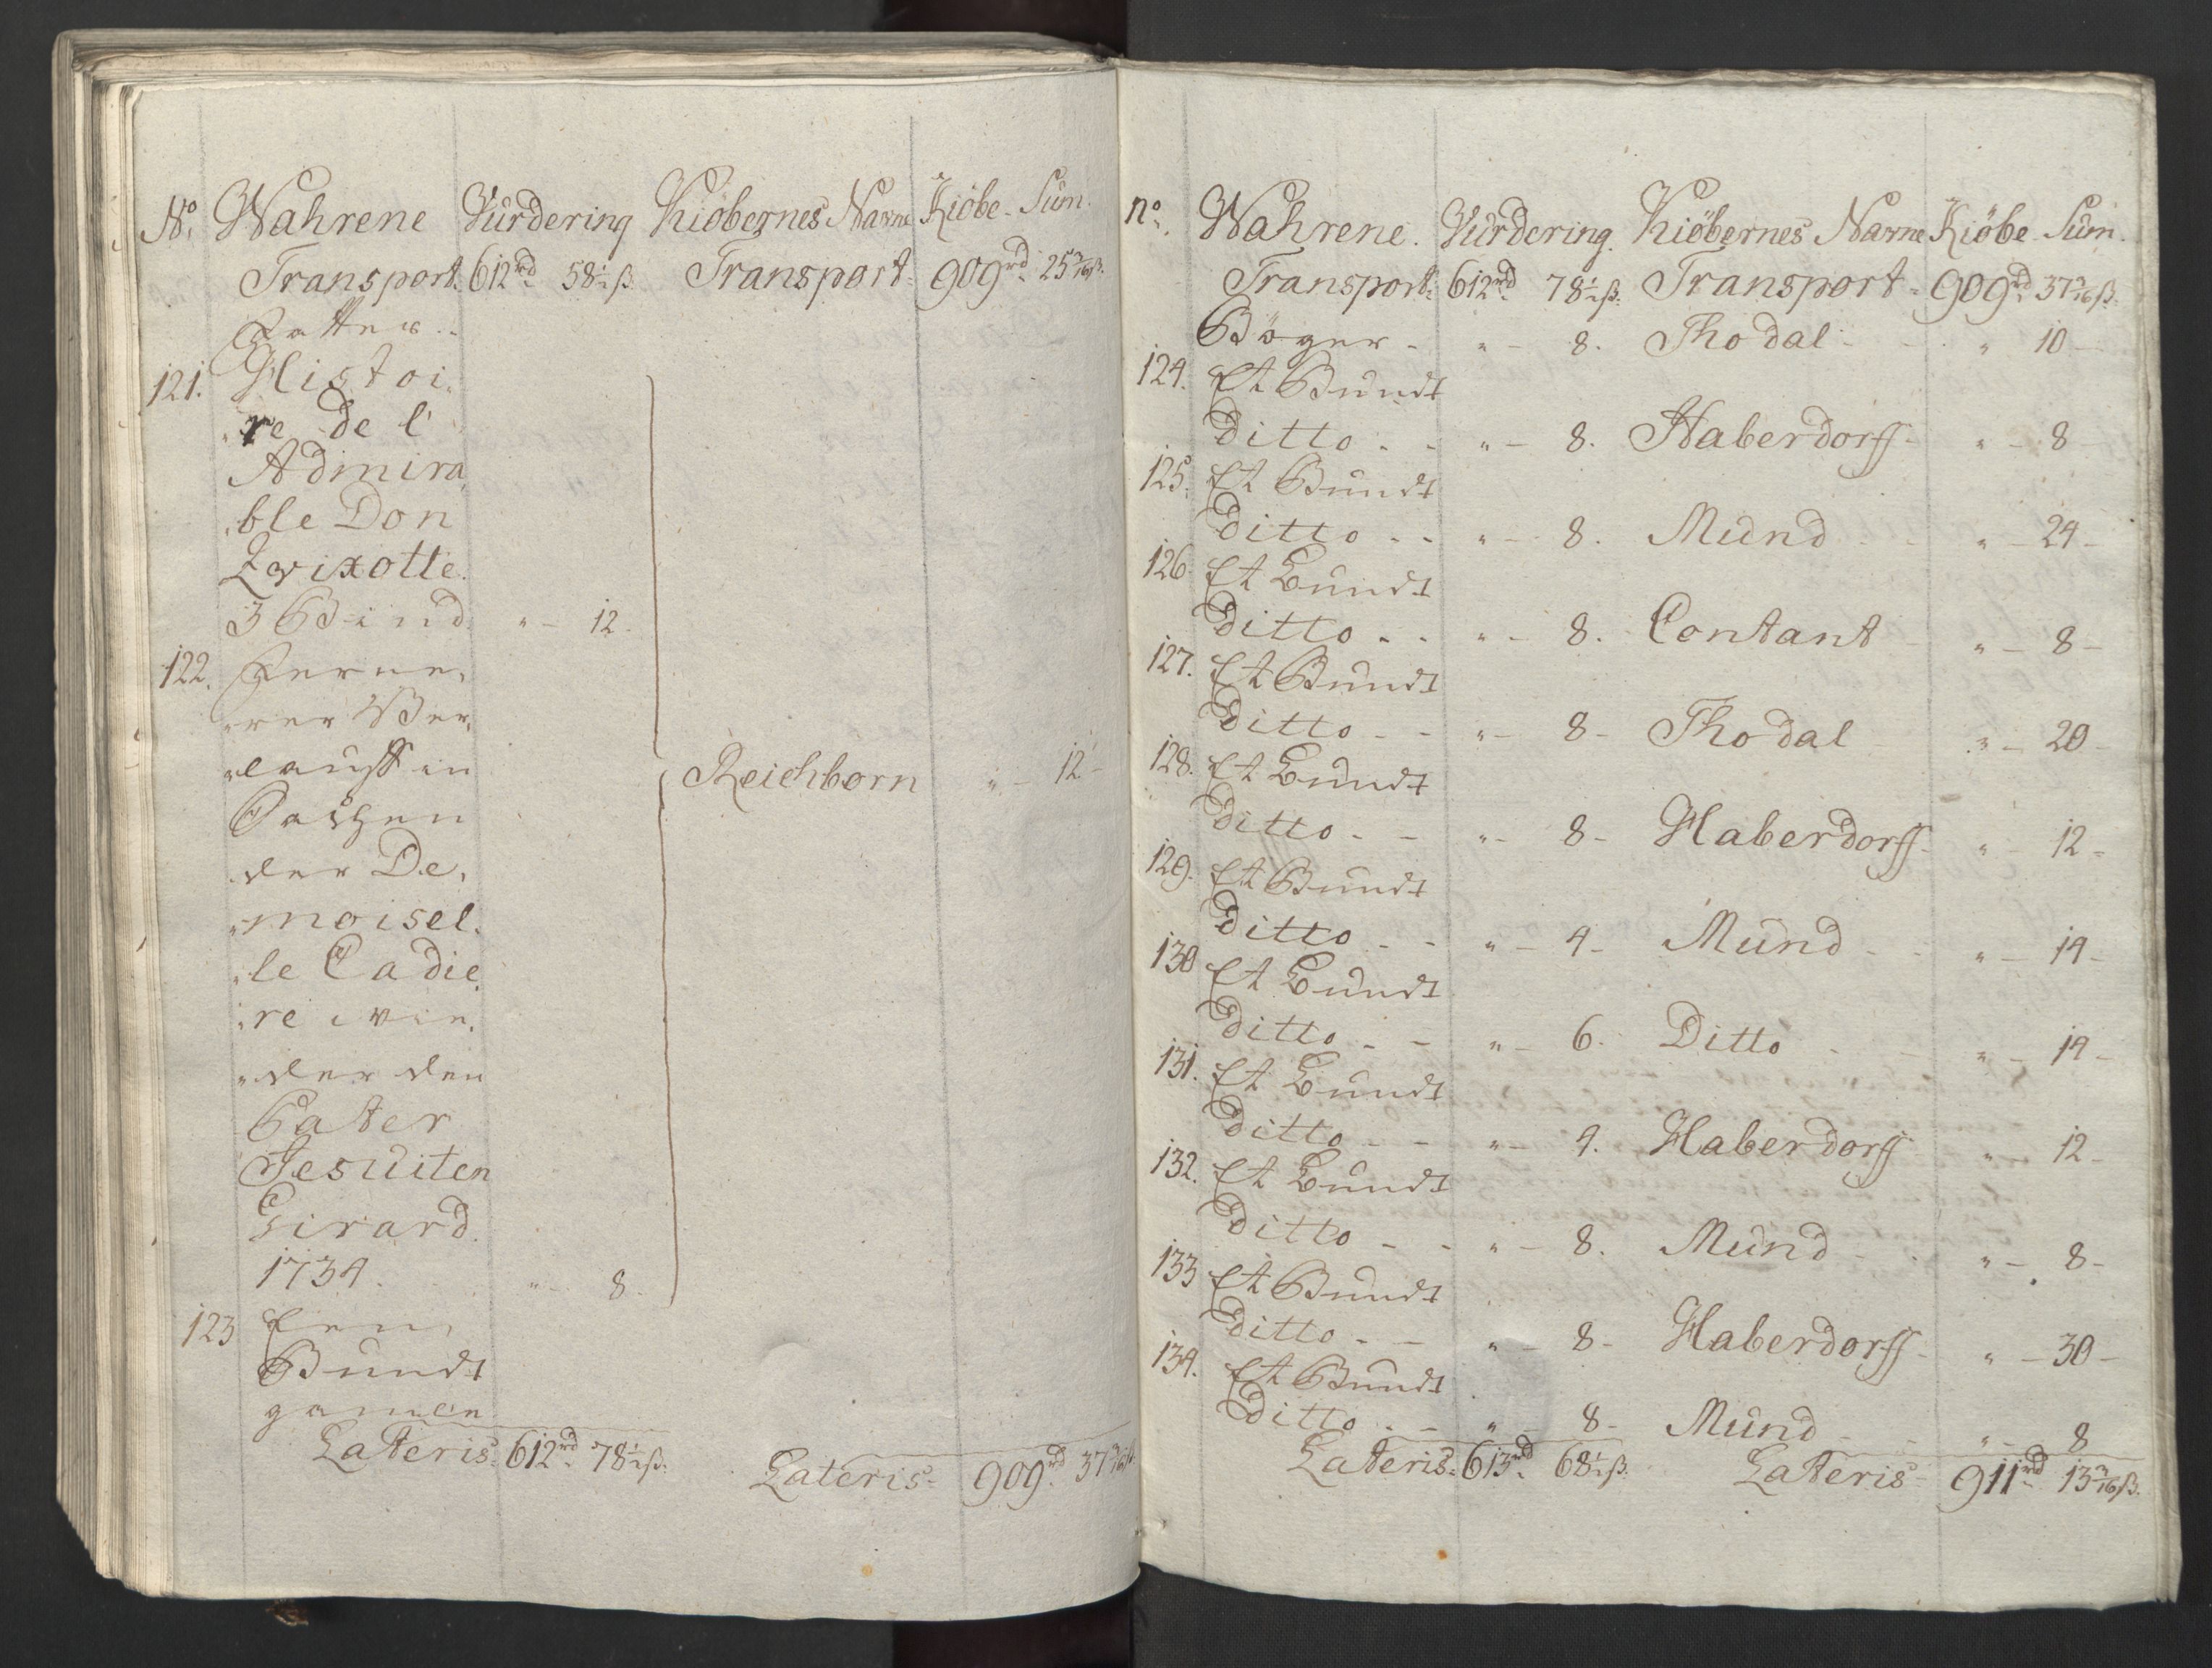 No. Wahrene Vurdering Kiöbernes Navne Kiöbe-Sum.
Transport. 612rd 58½ß. Transport. 909rd 25 3/16ß.
121. Histoi„
„re de l'
Admira„
„ble Don
Qvixotte.
3 Bind „ – 12 –
122. Ferne„
„rer Ver„
„lauff in
Sachen
der De„
„moisel„
„le Cadie„
„re wie„
„der den
Pater
Jesuiten
Girard.
1734. „ – 8. Reichborn „ – 12 –
123 Een
Bundt
gamle
Lateris. 612rd 78½ß. Lateris. 909rd 37 3/16ß.
no. Wahrene. Vurdering. Kiöbernes Navne Kiöbe Sum.
Transport. 612rd 78½ß. Transport. 909rd 37 3/16ß.
Böger – „ – 8. Thodal – „ 10 –
124. Et Bundt
Ditto . – „ – 8. Haberdorff – „ – 8
125. Et Bundt
Ditto – – „ – 8. Mund – „ – 24 –
126. Et Bundt
Ditto – – „ – 8. Contant „ – 8 –
127. Et Bundt
Ditto – – „ – 8 – Thodal „ – 20 –
128. Et Bundt
Ditto – – „ – 8 – Haberdorff – „ – 12 –
129. Et Bundt
Ditto – – „ – 4 – Mund – – „ – 14 –
130 Et Bundt
Ditto – – „ – 6. Ditto – „ – 14 –
131. Et Bundt
Ditto – – „ – 4. Haberdorff „ – 12 –
132. Et Bundt
Ditto – – „ – 8. Mund – . „ – 8 –
133 Et Bundt
Ditto – – „ – 8 – Haberdorff – „ – 30 –
134. Et Bundt
Ditto . – „ – 8 – Mund – – „ – 8
Lateris. 613rd 68½ß. Lateris – 911rd 13 3/16ß.